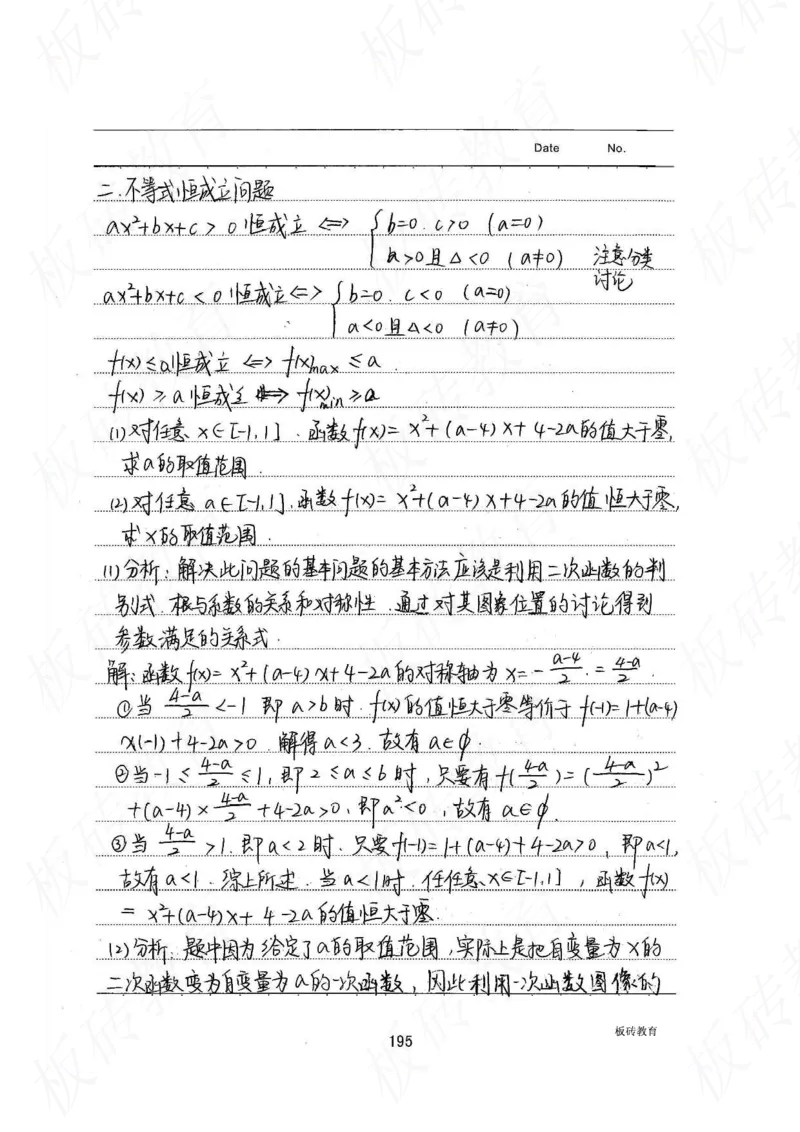 Date No.
二.不等式恒成立问题
ax²+bx+c>0恒成立 ⇔ { b=0. c>0 (a=0)
a>0且△<0 (a≠0) 注意分类
讨论
ax²+bx+c<0恒成立⇔ { b=0. c<0 (a=0)
a<0且△<0 (a≠0)
f(x)≤a恒成立 ⇔ f(x)max ≤a.
f(x)≥a恒成立 ⇔ f(x)min ≥a
(1)对任意 x∈[-1,1]. 函数f(x)= x²+(a-4)x+4-2a的值大于零,
求a的取值范围.
(2)对任意 a∈[-1,1], 函数f(x)= x²+(a-4)x+4-2a的值恒大于零,
求x的取值范围.
(1)分析: 解决此问题的基本问题的基本方法应该是利用二次函数的判
别式. 根与系数的关系和对称性. 通过对其图象位置的讨论得到
参数满足的关系式.
解: 函数f(x)= x²+(a-4)x+4-2a的对称轴为x=-(a-4)/2.=(4-a)/2
①当 (4-a)/2 <-1 即a>6时. f(x)的值恒大于零等价于 f(-1)=1+(a-4)
×(-1)+4-2a>0. 解得a<3. 故有a∈φ.
②当-1≤(4-a)/2≤1, 即2≤a≤6时, 只要有f((4-a)/2)=((4-a)/2)²
+(a-4)×(4-a)/2+4-2a>0, 即a²<0, 故有 a∈φ.
③当 (4-a)/2 >1. 即a<2时. 只要f(-1)=1+(a-4)+4-2a>0, 即a<1,
故有a<1. 综上所述. 当a<1时. 任任意x∈[-1,1], 函数f(x)
= x²+(a-4)x+4-2a的值恒大于零.
(2)分析: 题中因为给定了a的取值范围, 实际上是把自变量为x的
二次函数变为自变量为a的一次函数, 因此利用一次函数图像的
195
板砖教育